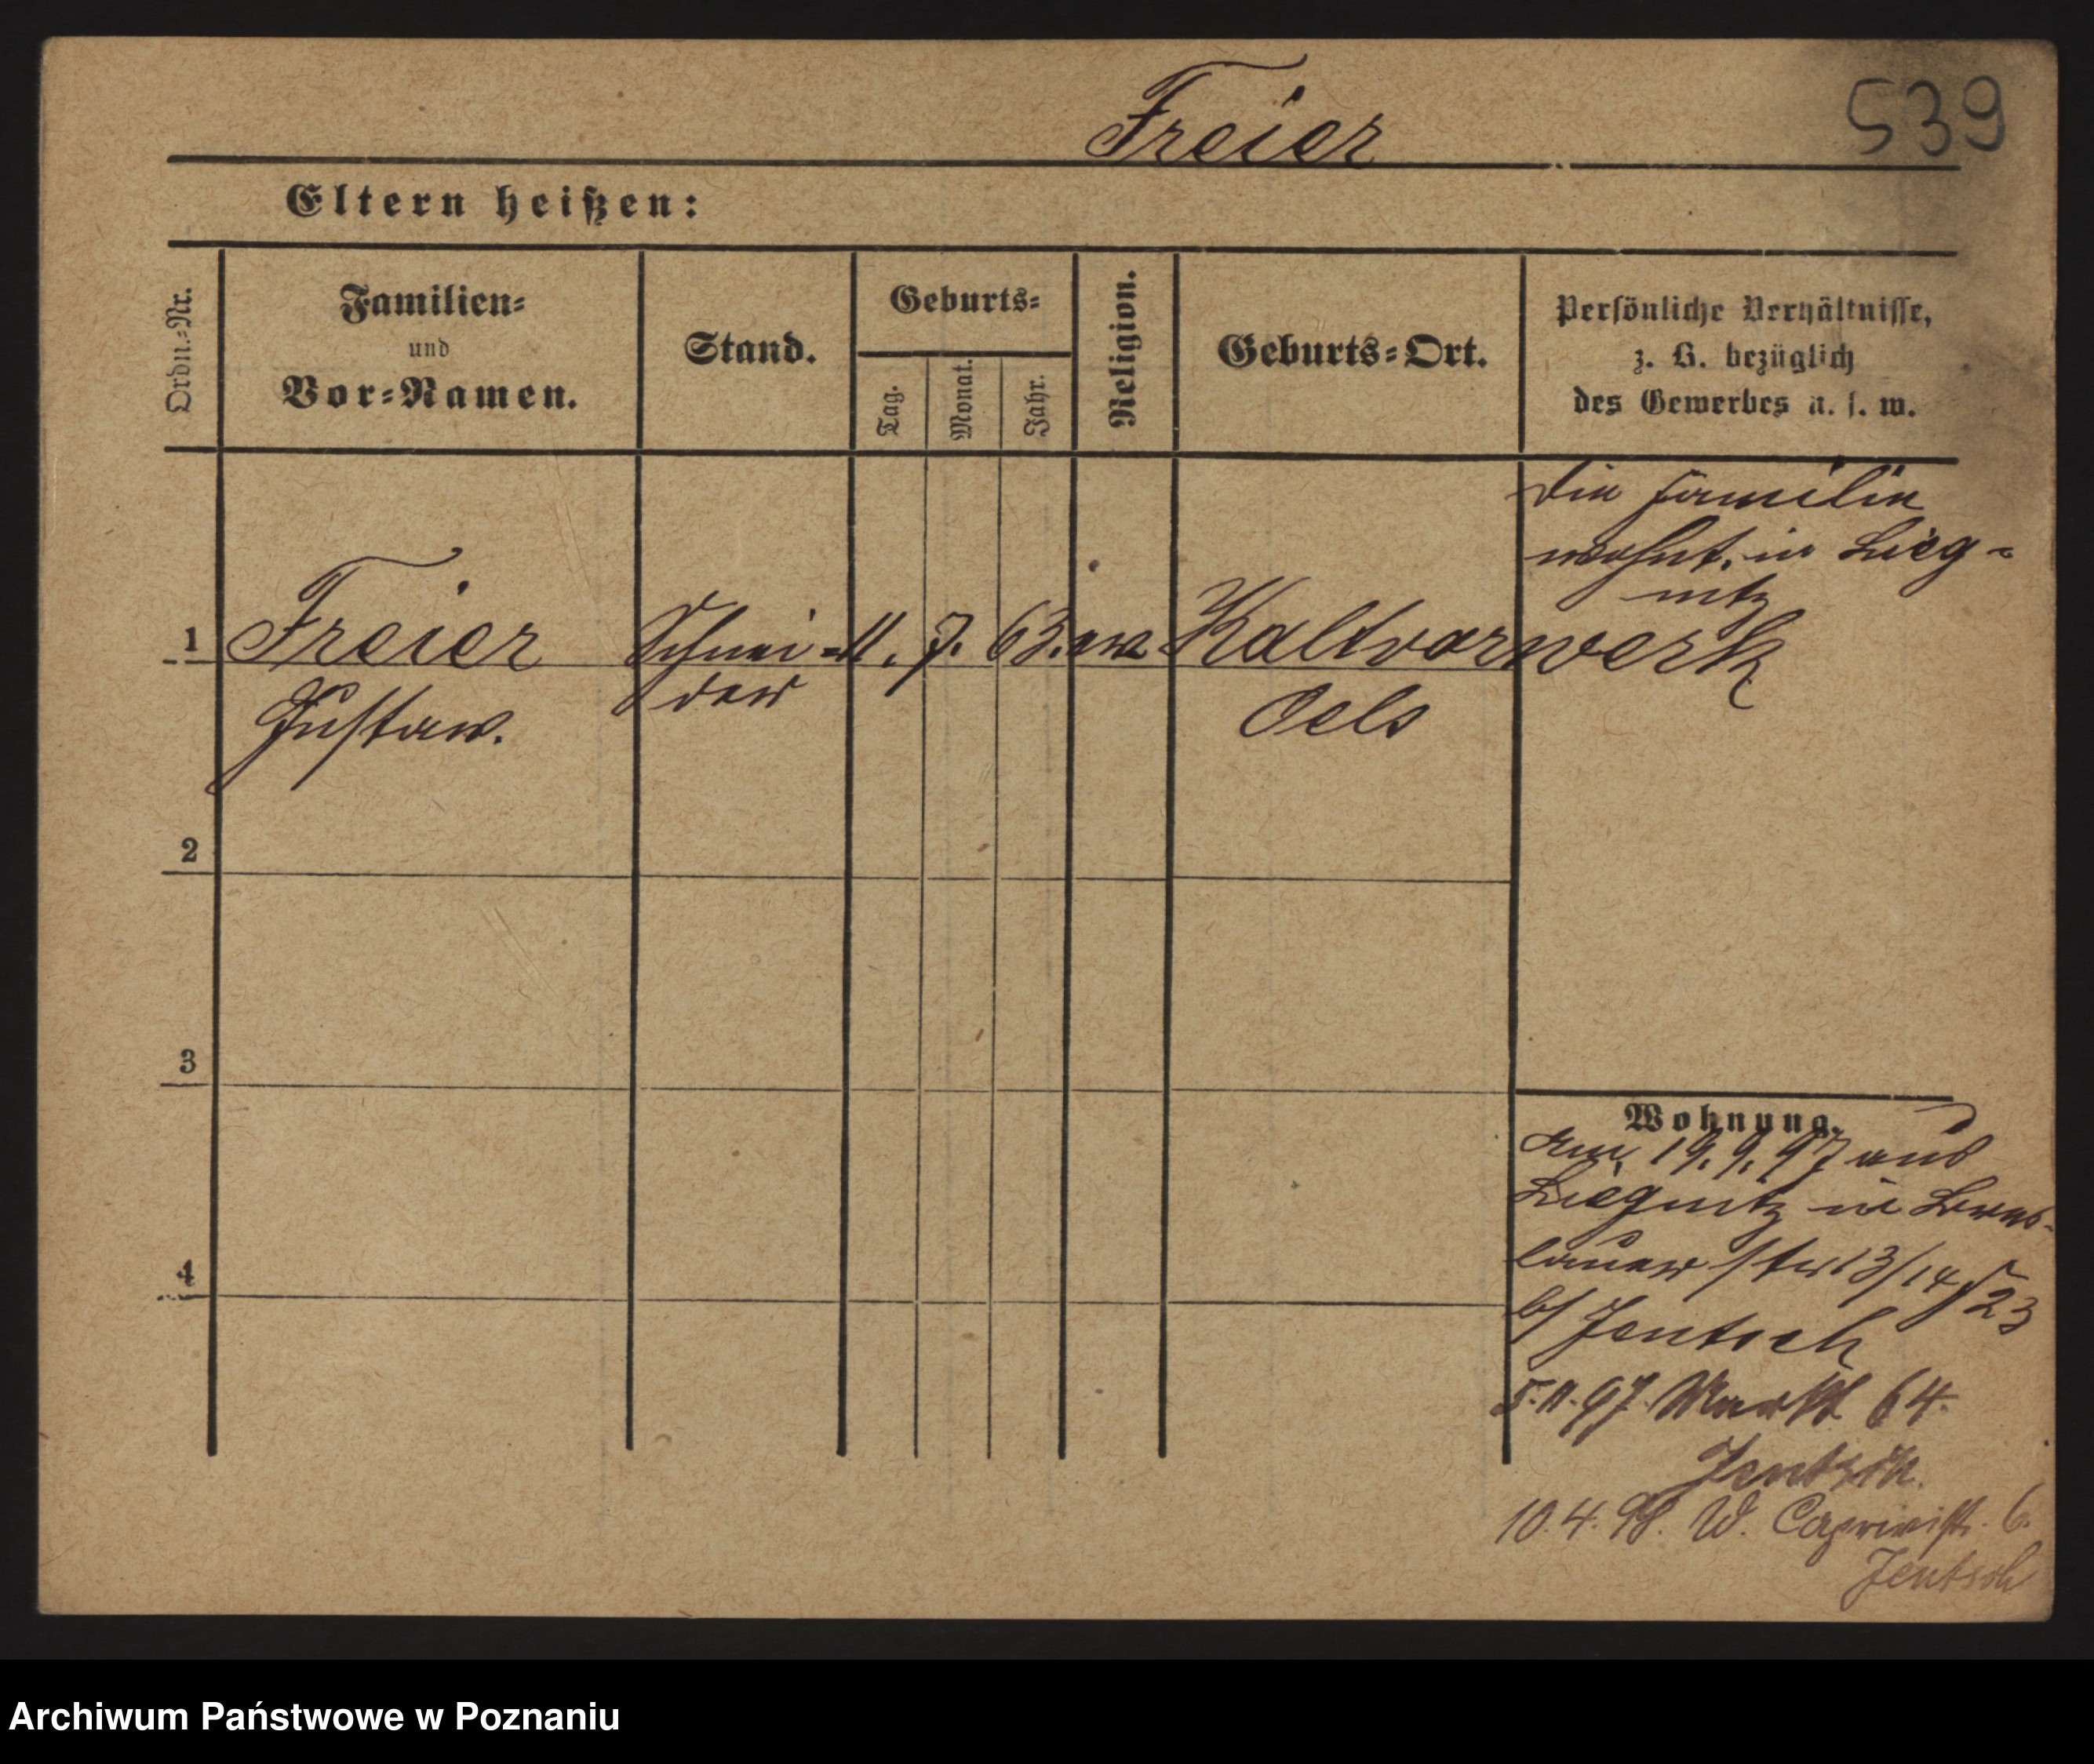 Freier
539
Eltern heißen:
Ordn.-Nr.
Familien-
und
Vor-Namen.
Stand.
Geburts-
Tag.
Monat.
Jahr.
Religion.
Geburts-Ort.
Persönliche Verhältnisse,
z. B. bezüglich
des Gewerbes u. s. w.
Die Familie
wohnt in Lieg-
nitz
1
Freier
Gustav.
Schnei-
der
11. 7. 63.
Kaltvorwerk
Oels
2
3
4
Wohnung.
Am 19.9.97 aus
Liegnitz in Bres-
lauer str 13/14
b/ Jentsch
5.11.97. Markt 64.
Jentsch.
10.4.98. W. Caprivistr. 6.
Jentsch
Archiwum Państwowe w Poznaniu